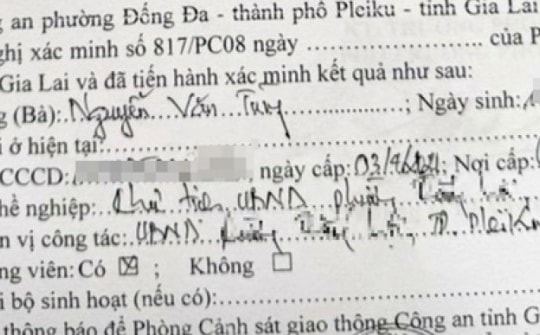 g an phường Đống Đa - thành phố Pleiku - tỉnh Gia Lai
ghị xác minh số 817/PC08 ngày ........................... của P
Gia Lai và đã tiến hành xác minh kết quả như sau:
g (Bà): Nguyễn Văn ...........................; Ngày sinh:
i ở hiện tại: ...........................
CCCD: ngày cấp: Nơi cấp:
hề nghiệp: Chủ tịch UBND phường
n vị công tác: UBND TP. Pleiku
ng viên: Có ☒ ; Không ☐
i bộ sinh hoạt (nếu có): ...........................
thông báo để Phòng Cảnh sát giao thông Công an tỉnh G